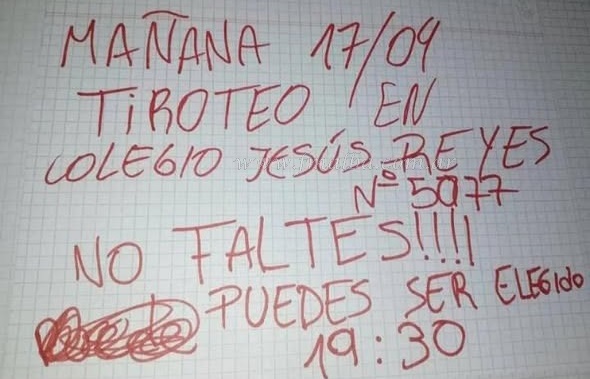 MAÑANA 17/04
TiROTEO EN
COLEGIO JESÚS REYES
Nº 5077
NO FALTES!!!!
PUEDES SER ELEGIDO
19:30